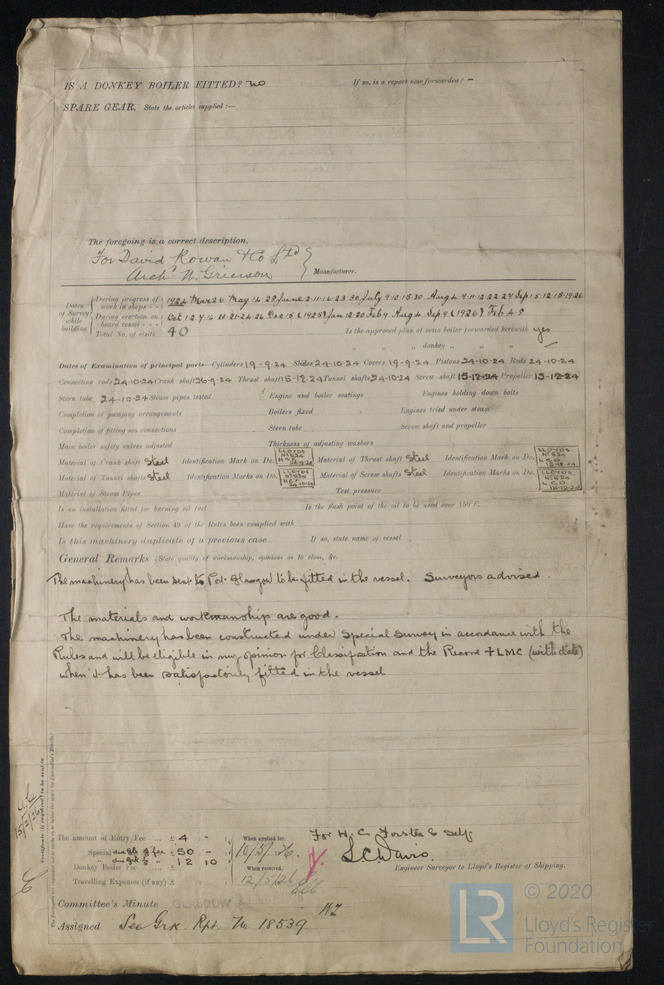 IS A DONKEY BOILER FITTED? no If so, is a report now forwarded? –
SPARE GEAR. State the articles supplied:—
The foregoing is a correct description,
For David Rowan & Co Ltd
Archd N. Grierson Manufacturer.
Dates of Survey while building
During progress of work in shops - - 1924 Mar 26 May 14. 28 June 2. 11. 16. 23. 30 July 9. 12. 15. 30 Aug 4. 7. 11. 12. 22. 27 Sep 1. 5. 12. 15. 19. 26
During erection on board vessel - - - Oct 1 2. 7. 14. 20. 21. 24. 26 Dec 15 1925 Jan 12. 20 Feb 7 Aug 4 Sep 9 1926 Feb 4. 5
Total No. of visits 40 Is the approved plan of main boiler forwarded herewith yes
" " " donkey " "
Dates of Examination of principal parts—Cylinders 19-9-24 Slides 24-10-24 Covers 19-9-24 Pistons 24-10-24 Rods 24-10-24
Connecting rods 24-10-24 Crank shaft 26-9-24 Thrust shaft 15-12-24 Tunnel shafts 24-10-24 Screw shaft 15-12-24 Propeller 15-12-24
Stern tube 24-10-24 Steam pipes tested Engine and boiler seatings Engines holding down bolts
Completion of pumping arrangements Boilers fixed Engines tried under steam
Completion of fitting sea connections Stern tube Screw shaft and propeller
Main boiler safety valves adjusted Thickness of adjusting washers
Material of Crank shaft Steel Identification Mark on Do. LLOYDS Material of Thrust shaft Steel Identification Mark on Do. LLOYDS
Material of Tunnel shafts Steel Identification Marks on Do. LLOYDS Material of Screw shafts Steel Identification Marks on Do. LLOYDS
Material of Steam Pipes Test pressure
Is an installation fitted for burning oil fuel Is the flash point of the oil to be used over 150°F.
Have the requirements of Section 49 of the Rules been complied with
Is this machinery duplicate of a previous case If so, state name of vessel
General Remarks (State quality of workmanship, opinions as to class, &c.
The machinery has been sent to Port Glasgow to be fitted in the vessel. Surveyors advised.
The materials and workmanship are good.
The machinery has been constructed under Special Survey in accordance with the
Rules and will be eligible in my opinion for Classification and the Record + LMC (with date)
when it has been satisfactorily fitted in the vessel
The amount of Entry Fee ... £ 4 : - :
Special £ 50 : - :
Donkey Boiler Fee £ 12 : 10 :
Travelling Expenses (if any) £
When applied for, 10/5/26
When received, 12/5/26
For H. C. Forster & Self
L C Davis
Engineer Surveyor to Lloyd's Register of Shipping.
Committee's Minute GLASGOW
Assigned See Grk. Rpt. No 18539
© 2020
LR Lloyd's Register
Foundation